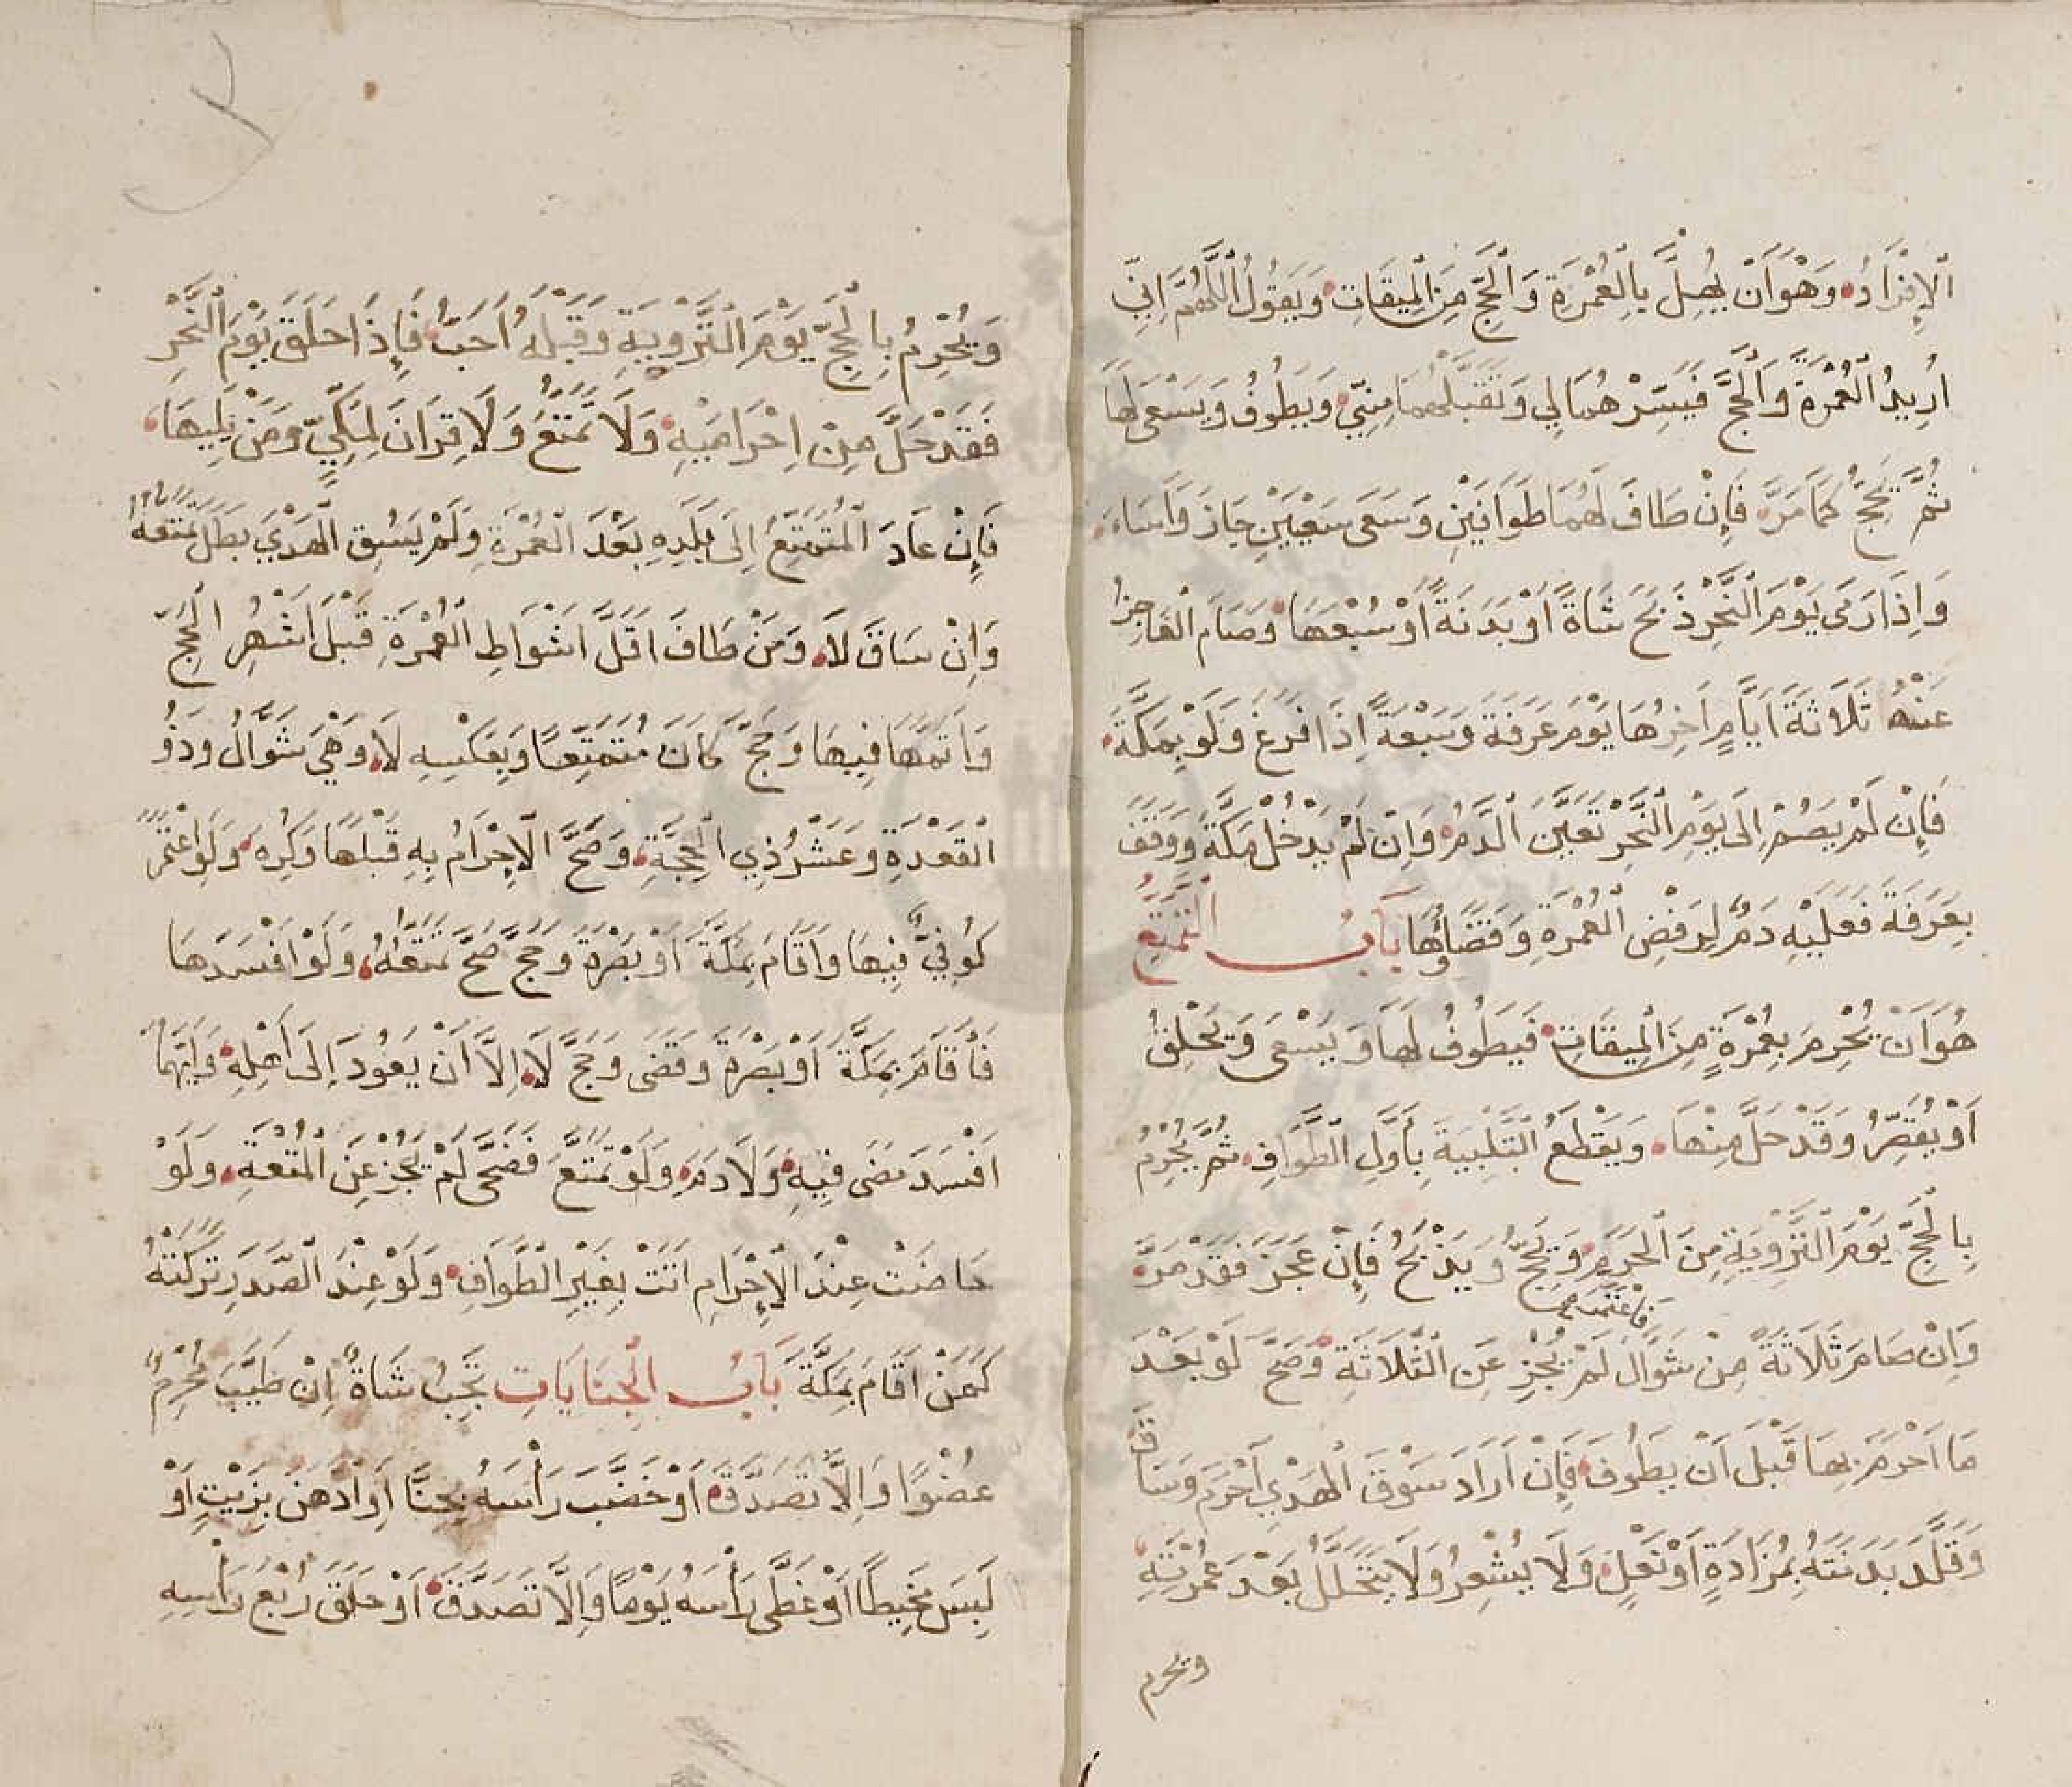 الْإِفْرَادُ وَهْوَ أَنْ يُهِلَّ بِالْعُمْرَةِ وَالْحَجِّ مِنَ الْمِيقَاتِ وَيَقُولُ اللَّهُمَّ اِنِّي
اُرِيدُ الْعُمْرَةَ وَالْحَجَّ فَيَسِّرْهُمَا لِي وَتَقَبَّلْهُمَا مِنِّي وَيَطُوفُ وَيَسْعَى لَهَا
ثُمَّ يَحُجُّ كَمَا مَرَّ فَإِنْ طَافَ لَهُمَا طَوَافَيْنِ وَسَعَى سَعْيَيْنِ جَازَ وَأَسَاءَ
وَإِذَا رَمَى يَوْمَ النَّحْرِ ذَبَحَ شَاةً أَوْ بَدَنَةً أَوْ سُبْعَهَا وَصَامَ الْعَاجِزُ
عَنْهُ ثَلَاثَةَ اَيَّامٍ اَخِرُهَا يَوْمَ عَرَفَةَ وَسَبْعَةً اِذَا فَرَغَ وَلَوْ بِمَكَّةَ
فَإِنْ لَمْ يَصُمْ اِلَى يَوْمِ النَّحْرِ تَعَيَّنَ الدَّمُ وَاِنْ لَمْ يَدْخُلْ مَكَّةَ وَوَقَفَ
بِعَرَفَةَ فَعَلَيْهِ دَمٌ لِرَفْضِ الْعُمْرَةِ وَقَضَاؤُهَا بَابُ التَّمَتُّعِ
هُوَ اَنْ يُحْرِمَ بِعُمْرَةٍ مِنَ الْمِيقَاتِ فَيَطُوفُ لَهَا وَيَسْعَى وَيَحْلِقُ
اَوْ يُقَصِّرُ وَقَدْ حَلَّ مِنْهَا وَيَقْطَعُ التَّلْبِيَةَ بِأَوَّلِ الطَّوَافِ ثُمَّ يُحْرِمُ
بِالْحَجِّ يَوْمَ التَّرْوِيَةِ مِنَ الْحَرَمِ وَيَحُجُّ وَيَذْبَحُ فَإِنْ عَجَزَ فَقَدْ مَرَّ
فَاعْتَمَرَ
وَاِنْ صَامَ ثَلَاثَةً مِنْ شَوَّالٍ لَمْ يُجْزِ عَنِ الثَّلَاثَةِ وَصَحَّ لَوْ بَعْدَ
مَا اَحْرَمَ بِهَا قَبْلَ اَنْ يَطُوفَ فَإِنْ اَرَادَ سَوْقَ الْهَدْيِ اَحْرَمَ وَسَاقَ
وَقَلَّدَ بَدَنَتَهُ بِمُزَادَةٍ اَوْ نَعْلٍ وَلَا يُشْعِرُ وَلَا يَتَحَلَّلُ بَعْدَ عُمْرَتِهِ
ويحرم
وَيُحْرِمُ بِالْحَجِّ يَوْمَ التَّرْوِيَةِ وَقَبْلَهُ اَحَبُّ فَإِذَا حَلَقَ يَوْمَ النَّحْرِ
فَقَدْ حَلَّ مِنْ اِحْرَامَيْهِ وَلَا تَمَتُّعَ وَلَا قِرَانَ لِمَكِّيٍّ وَمَنْ يَلِيهَا
فَإِنْ عَادَ الْمُتَمَتِّعُ اِلَى بَلَدِهِ بَعْدَ الْعُمْرَةِ وَلَمْ يَسُقِ الْهَدْيَ بَطَلَ تَمَتُّعُهُ
وَاِنْ سَاقَ لَا وَمَنْ طَافَ اَقَلَّ اَشْوَاطِ الْعُمْرَةِ قَبْلَ اَشْهُرِ الْحَجِّ
وَاَتَمَّهَا فِيهَا وَحَجَّ كَانَ مُتَمَتِّعًا وَبِعَكْسِهِ لَا وَهْيَ شَوَّالُ وَذُو
الْقَعْدَةِ وَعَشْرُ ذِي الْحِجَّةِ وَصَحَّ الْإِحْرَامُ بِهِ قَبْلَهَا وَكُرِهَ وَلَوِ اعْتَمَرَ
كُوفِيٌّ فِيهَا وَاَقَامَ بِمَكَّةَ اَوْ بَصْرَةَ وَحَجَّ صَحَّ تَمَتُّعُهُ وَلَوْ اَفْسَدَهَا
فَأَقَامَ بِمَكَّةَ اَوْ بَصْرَةَ وَقَضَى وَحَجَّ لَا اِلَّا اَنْ يَعُودَ اِلَى اَهْلِهِ وَاَيَّهُمَا
اَفْسَدَ مَضَى فِيهِ وَلَا دَمَ وَلَوْ تَمَتَّعَ فَضَحَّى لَمْ يُجْزِ عَنِ الْمُتْعَةِ وَلَوْ
حَاضَتْ عِنْدَ الْإِحْرَامِ اَتَتْ بِغَيْرِ الطَّوَافِ وَلَوْ عِنْدَ الصَّدَرِ تَرَكَتْهُ
كَمَنْ اَقَامَ بِمَكَّةَ بَابُ الْجِنَايَاتِ تَجِبُ شَاةٌ اِنْ طَيَّبَ مُحْرِمٌ
عُضْوًا وَاِلَّا تَصَدَّقَ اَوْ خَضَبَ رَأْسَهُ بِحِنَّا اَوِ ادَّهَنَ بِزَيْتٍ اَوْ
لَبِسَ مَخِيطًا اَوْ غَطَّى رَأْسَهُ يَوْمًا وَاِلَّا تَصَدَّقَ اَوْ حَلَقَ رُبْعَ رَأْسِهِ